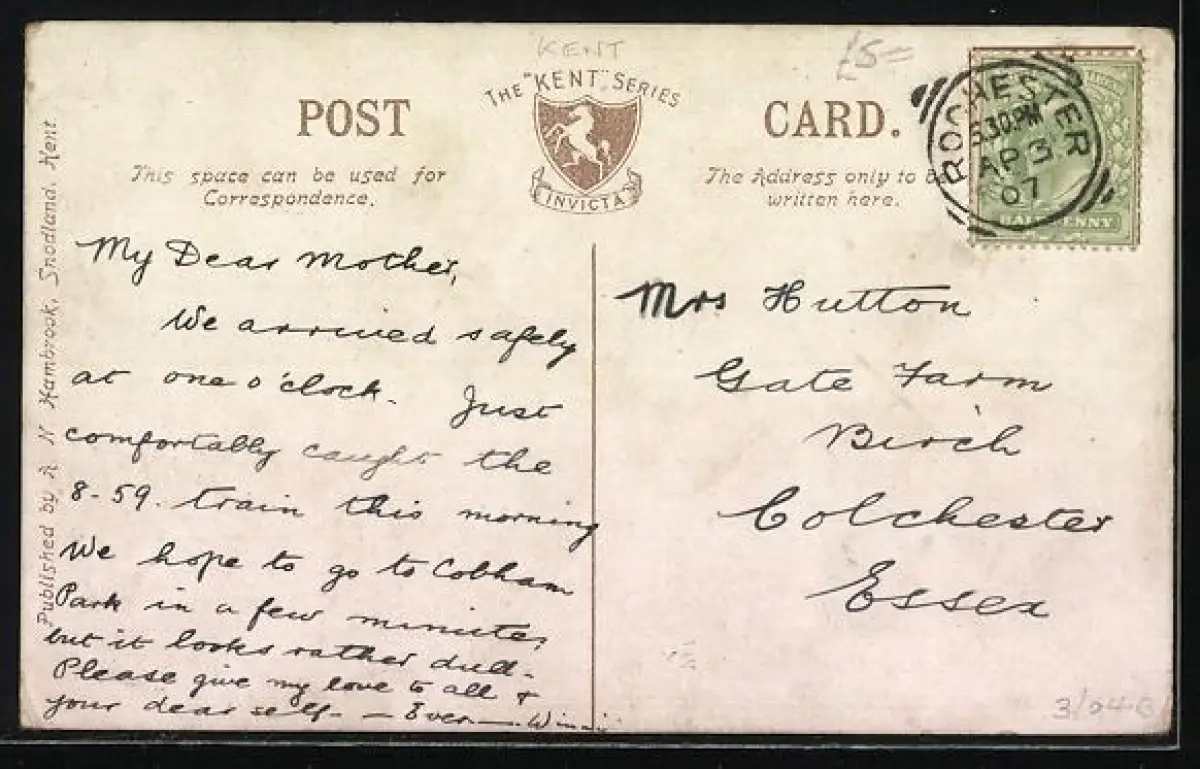 KENT
£5=
THE "KENT" SERIES
INVICTA
POST CARD.
This space can be used for
Correspondence.
The Address only to be
written here.
ROCHESTER
5.30.PM
AP 3
07
HALFPENNY
Published by A. N Hambrook, Snodland, Kent
My Dear Mother,
We arrived safely
at one o'clock. Just
comfortably caught the
8-59. train this morning
We hope to go to Cobham
Park in a few minutes
but it looks rather dull.
Please give my love to all +
your dear self - — Ever — Winnie
Mrs Hutton
Gate Farm
Birch
Colchester
Essex